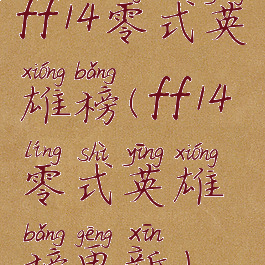 ff14零式英
xióng bǎng
雄榜(ff14
líng shì yīng xióng
零式英雄
bǎng gēng xīn
榜更新)